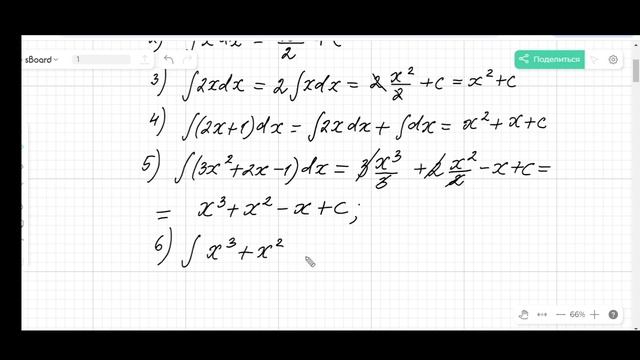 sBoard
1
Поделиться
3) ∫2xdx = 2∫xdx = 2 x²/2 + c = x² + c
4) ∫(2x+1)dx = ∫2xdx + ∫dx = x² + x + c
5) ∫(3x²+2x-1)dx = 3x³/3 + 2x²/2 - x + c =
= x³ + x² - x + c;
6) ∫ x³ + x²
66%